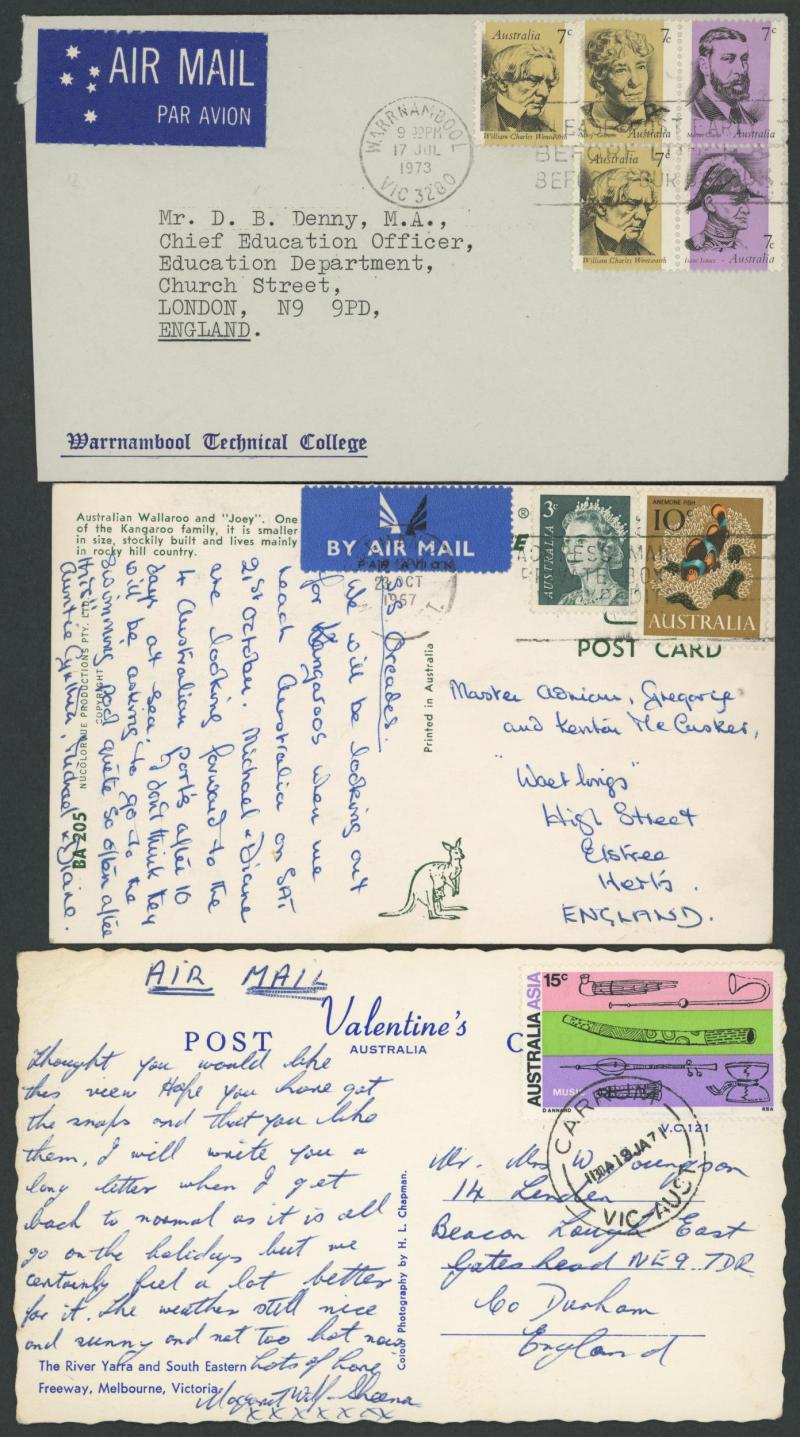 AIR MAIL
PAR AVION
WARRNAMBOOL
9 PM
17 JUL
1973
VIC 3280
Australia 7c
William Charles Wentworth
7c
Australia
7c
Australia
7c
William Charles Wentworth
Isaac Isaacs
7c
Australia
BEFORE
Mr. D. B. Denny, M.A.,
Chief Education Officer,
Education Department,
Church Street,
LONDON, N9 9PD,
ENGLAND.
Warrnambool Technical College
Australian Wallaroo and "Joey". One
of the Kangaroo family, it is smaller
in size, stockily built and lives mainly
in rocky hill country.
BY AIR MAIL
PAR AVION
23 OCT
1967
®
3c
AUSTRALIA
ANEMONE FISH
10c
AUSTRALIA
POST CARD
Printed in Australia
NUCOLORVUE PRODUCTIONS PTY. LTD.
COPYRIGHT
BA 205
Orcades.
We will be looking out
for Kangaroos when we
reach Australia on SAT
21st October. Michael & Diane
are looking forward to the
4 Australian ports after 10
days at sea. I don't think they
will be asking to go to the
swimming pool quite so often after
this!
Auntie Cynthia, Michael & Diane.
Master Adrian, Gregorie
and Kenton McCusker,
High Street
Elstree
Herts.
ENGLAND.
AIR MAIL
POST
Valentine's
AUSTRALIA
C
15c
AUSTRALIA ASIA
MUSIC
D ANNAND
RBA
CARRUM
1130A 18 JA 71
VIC-AUST
V.C.121
Thought you would like
this view Hope you have got
the snaps and that you like
them, I will write you a
long letter when I get
back to normal as it is all
go on the holidays but we
certainly feel a lot better
for it. The weather still nice
and sunny and not too hot now
Lots of love
Margaret Wilf Sheena
x x x x x x x
The River Yarra and South Eastern
Freeway, Melbourne, Victoria
Colour Photography by H. L. Chapman.
Mr. Mrs W
14 Linden
Beacon Lough East
Gateshead NE9 7DR
Co Durham
England